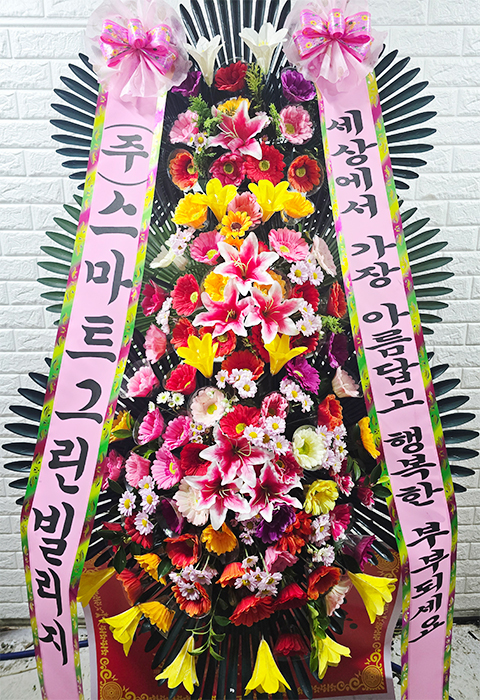 (주)스마트그린빌리지
세상에서 가장 아름답고 행복한 부부되세요